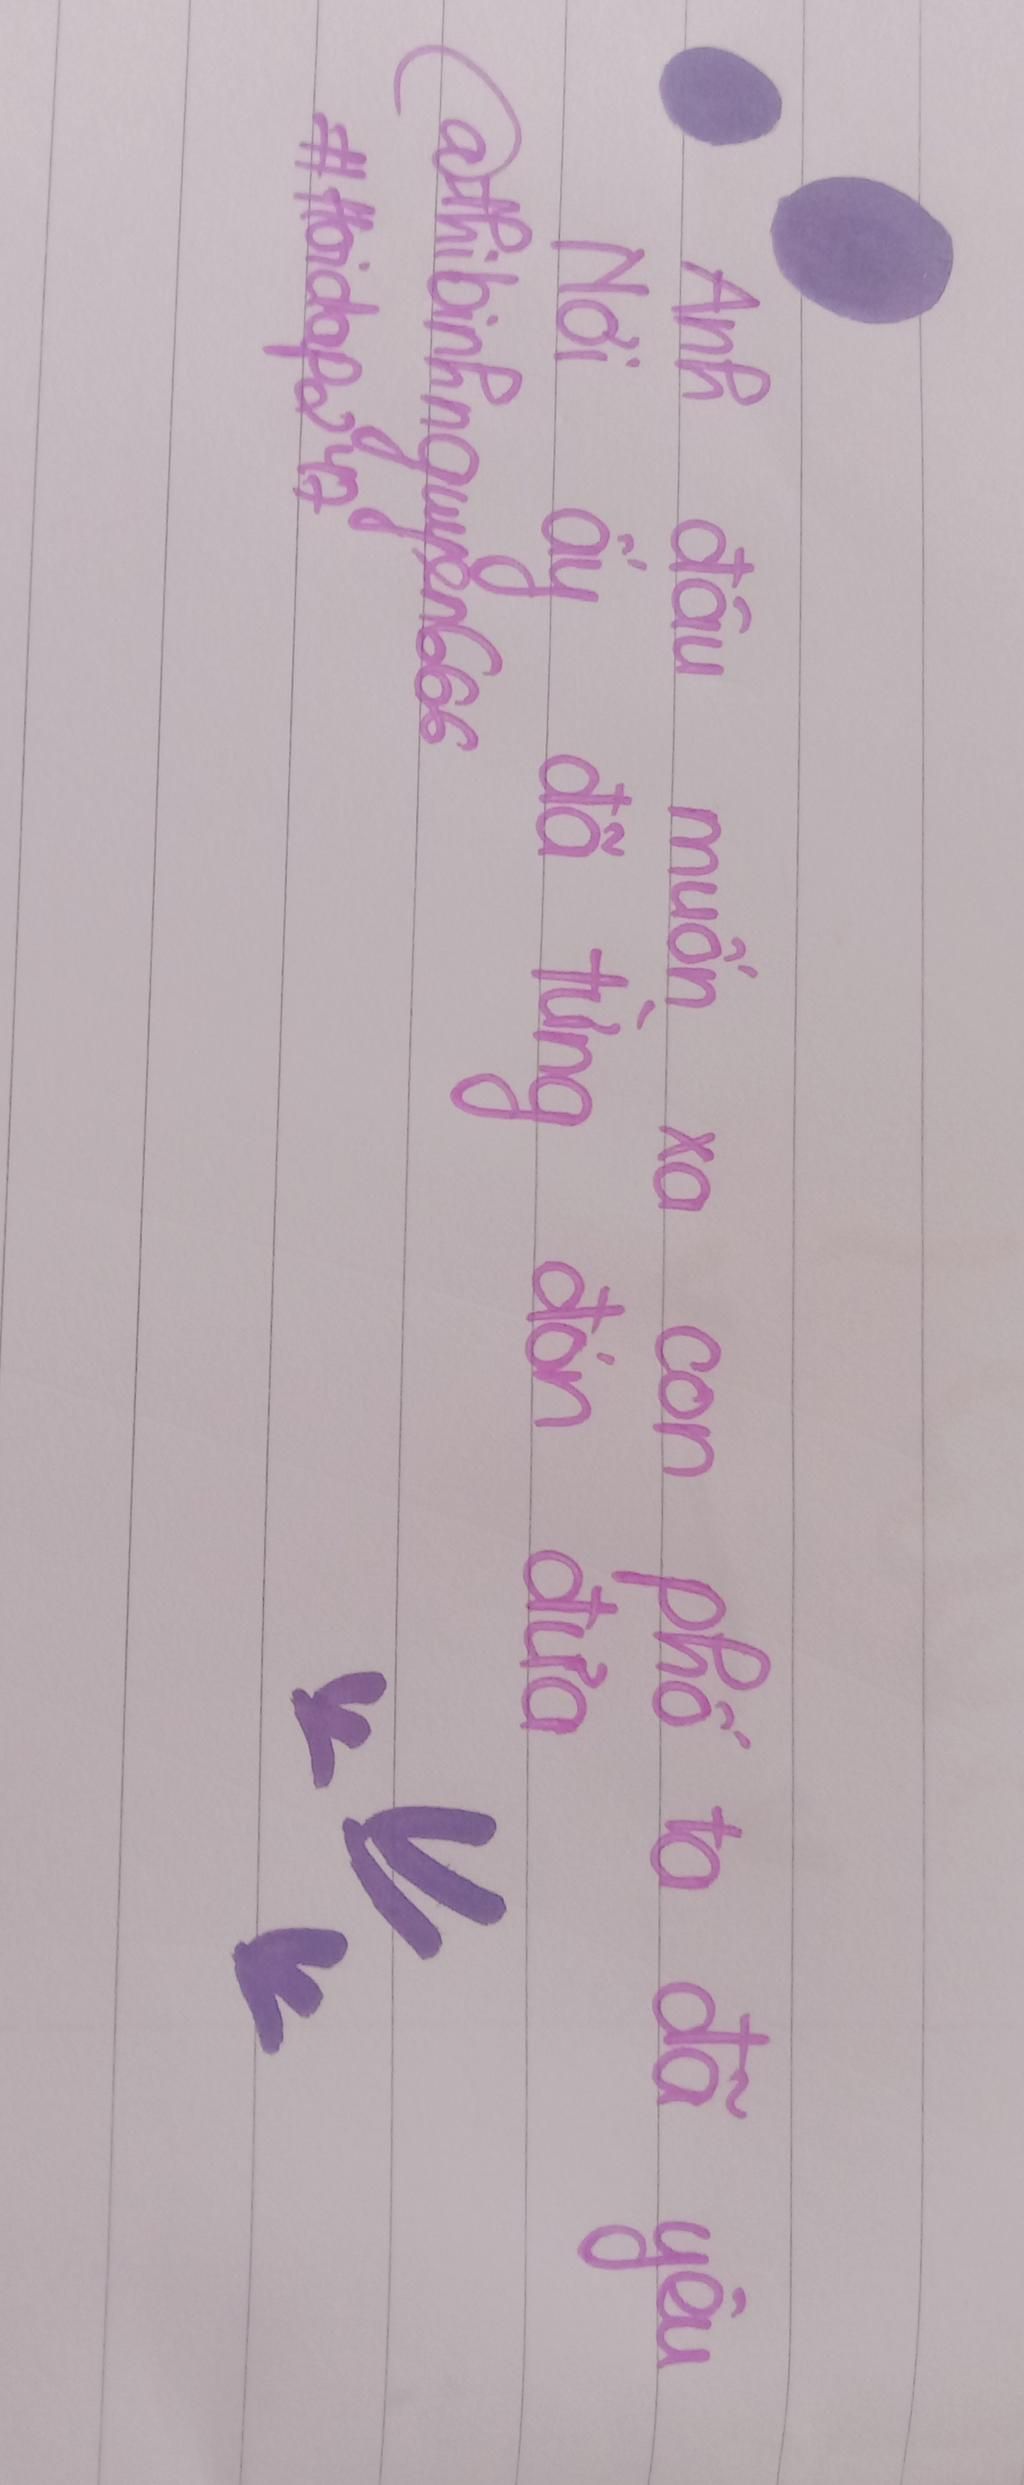 Anh đâu muốn xa con phố ta đã yêu
Nơi ấy đã từng đón đưa
@thibinhnguyen666
#hoidapay47